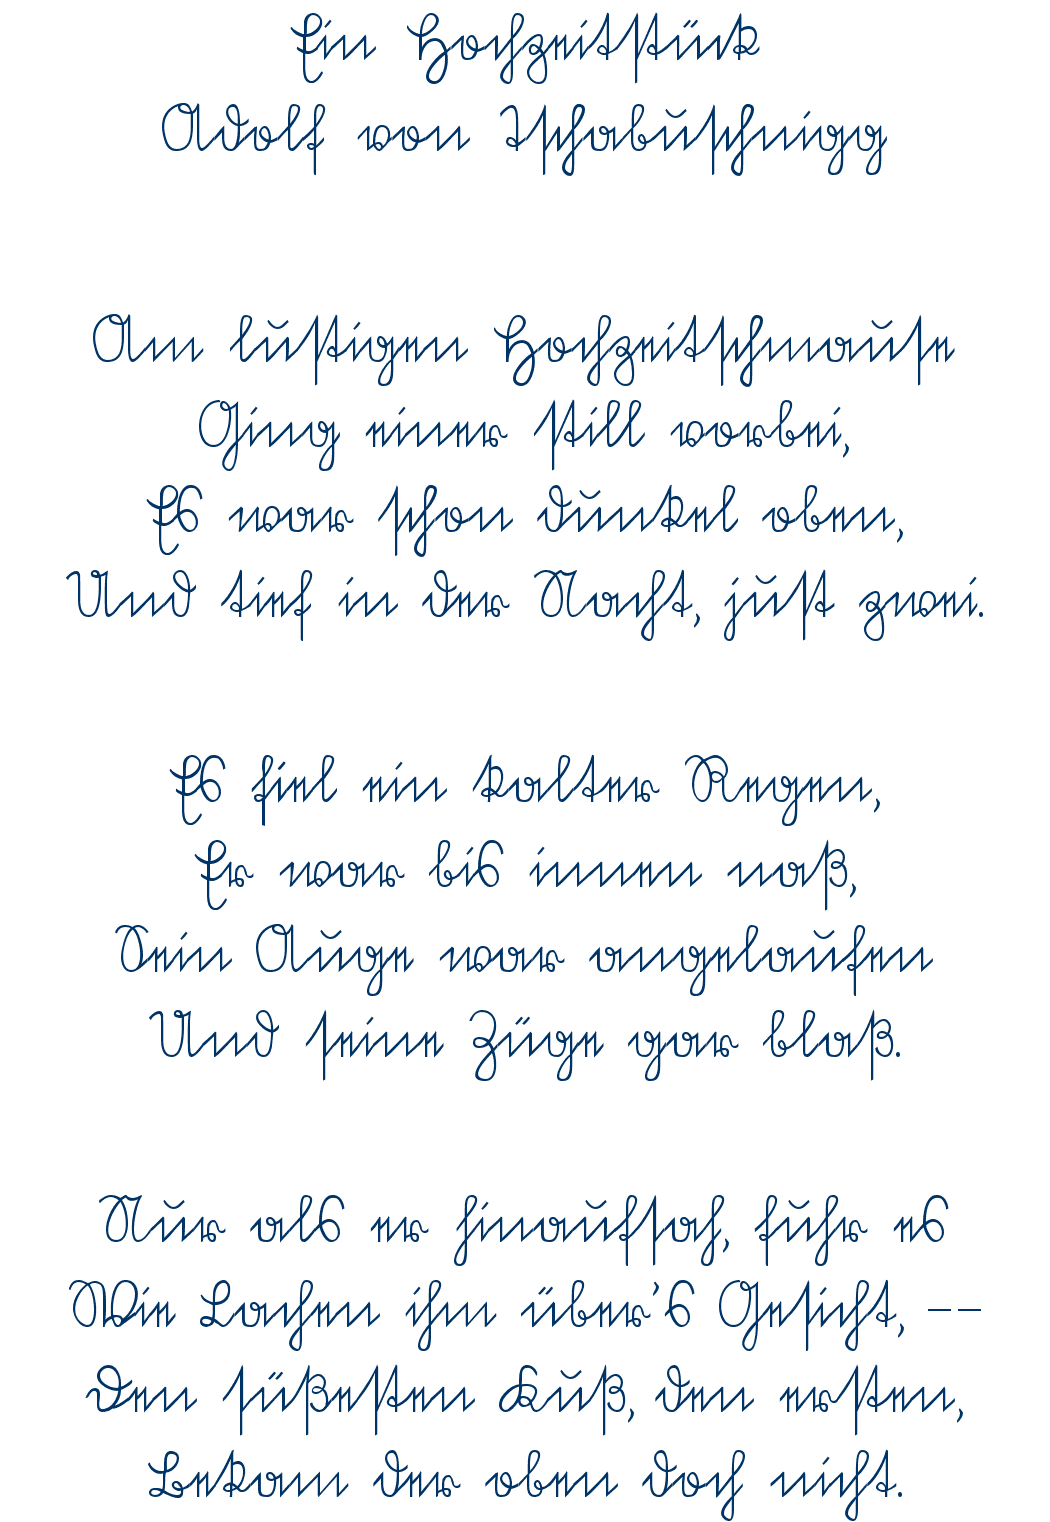 Ein Hochzeitstück
Adolf von Tschabuschnigg
Am lustigen Hochzeitschmause
Ging einer still vorbei,
Es war schon dunkel oben,
Und tief in der Nacht, just zwei.
Es fiel ein kalter Regen,
Er war bis innen naß,
Sein Auge war angelaufen
Und seine Züge gar blaß.
Nur als er hinaufsah, fuhr es
Wie Lachen ihm über's Gesicht, --
Den süßesten Kuß, den ersten,
Bekam der oben doch nicht.